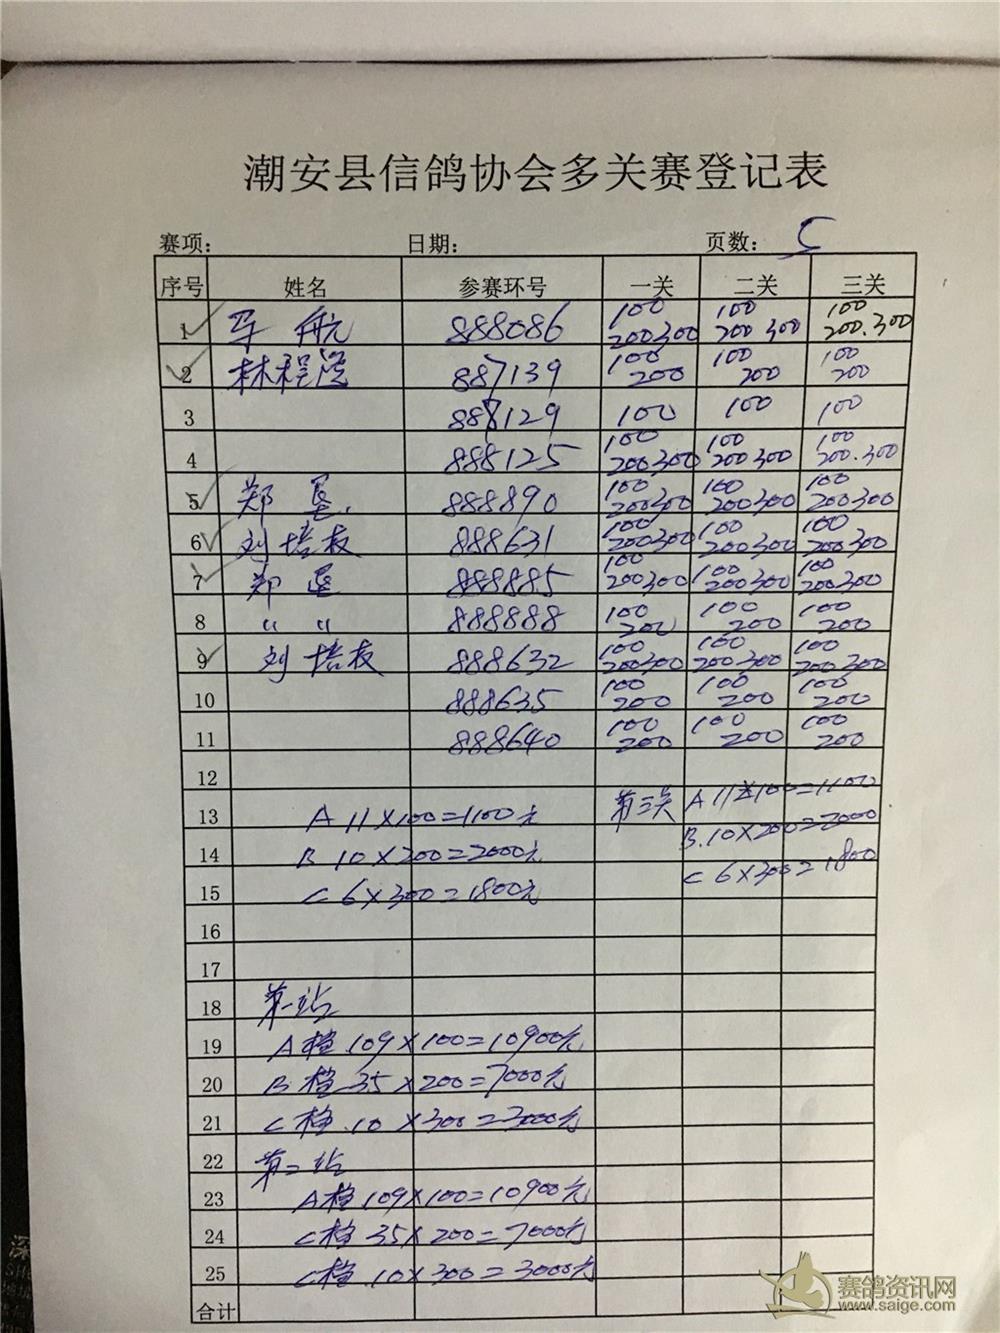 潮安县信鸽协会多关赛登记表
赛项: 日期: 页数: 5
序号 姓名 参赛环号 一关 二关 三关
1 航 888086 100 200 300 100 200 300 100 200.300
2 林程浩 887139 100 200 100 200 100 200
3 888129 100 100 100
4 888125 100 200 300 100 200 300 100 200.300
5 郑垦 888890 100 200 300 100 200 300 100 200 300
6 刘培枝 888631 100 200 300 100 200 300 100 200 300
7 郑垦 888885 100 200 300 100 200 300 100 200 300
8 〃 〃 888888 100 200 100 200 100 200
9 刘培枝 888632 100 200 300 100 200 300 100 200 300
10 888635 100 200 100 200 100 200
11 888640 100 200 100 200 100 200
12
13 A 11×100=1100元 第三关 A 11×100=1100
14 B 10×200=2000元 B.10×200=2000
15 C 6×300=1800元 C 6×300=1800
16
17
18 第一站
19 A档 109×100=10900元
20 B档 35×200=7000元
21 C档.10×300=3000元
22 第二站
23 A档 109×100=10900元
24 C档 35×200=7000元
25 C档.10×300=3000元
合计
深
赛鸽资讯网
www.saige.com